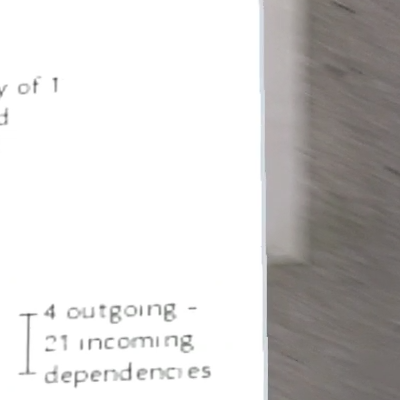 of 1
4 outgoing -
21 incoming
dependencies